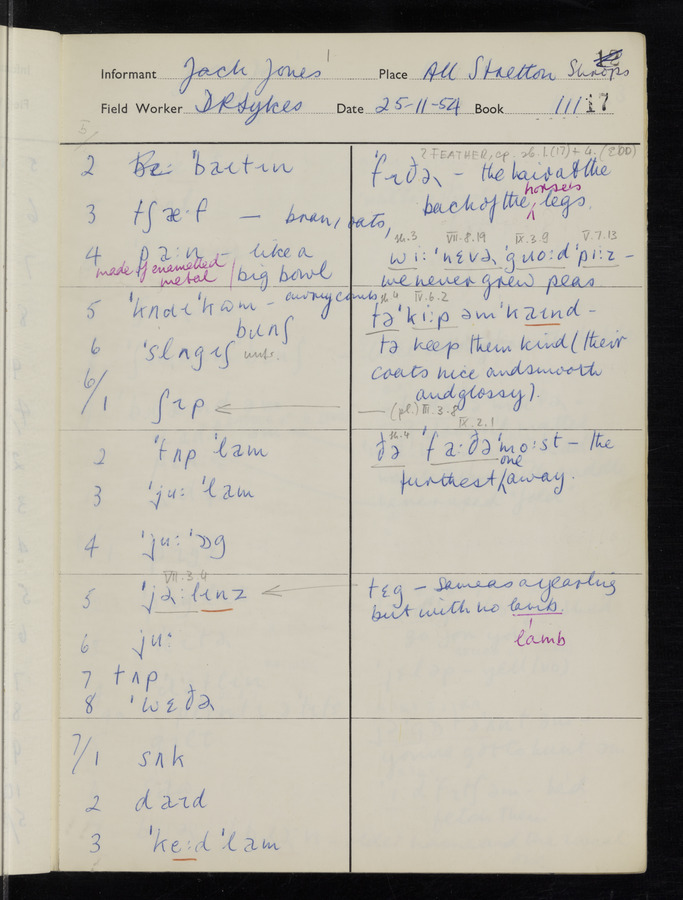 Informant Jack Jones Place All Stretton Shrops
Field Worker D R Sykes Date 25-11-54 Book 111/17
5/
2 ˈbaɪtɪn
3 tʃæ·f — bran, oats,
4 pa:n — like a
made of enamelled metal / big bowl
5 ˈkʌɹɪˈkəm — currycombs
6 ˈslʌɡɪʃ
6/
1 ʃɪp
2 ˈtʌp ˈlam
3 ˈju: ˈlam
4 ˈju: ˈɒɡ
VII.3.4
5 ˈjə:lɪnz
6 ju:
7 tʌp
8 ˈwɛðə
7/1 sʌk
2 daɪd
3 ˈke:d ˈlam
? FEATHER, cp. 26.1.(17)+4.(EDD)
ˈfɪðəɹ — the hair at the
back of the horses legs.
th.3 VII.8.19 IX.3.9 V.7.13
wi: ˈnɛvə ˈɡɹo:d ˈpi:z —
we never grew peas
th.4 IV.6.2
tə ˈki:p əm ˈkaɪnd —
to keep them kind (their
coats nice and smooth
and glossy).
— (pl.) III.3.8
th.4 IX.2.1
ðə ˈfa:ðəˈmo:st — the
furthest one away.
tɛɡ — same as a yearling
but with no lamb.
lamb